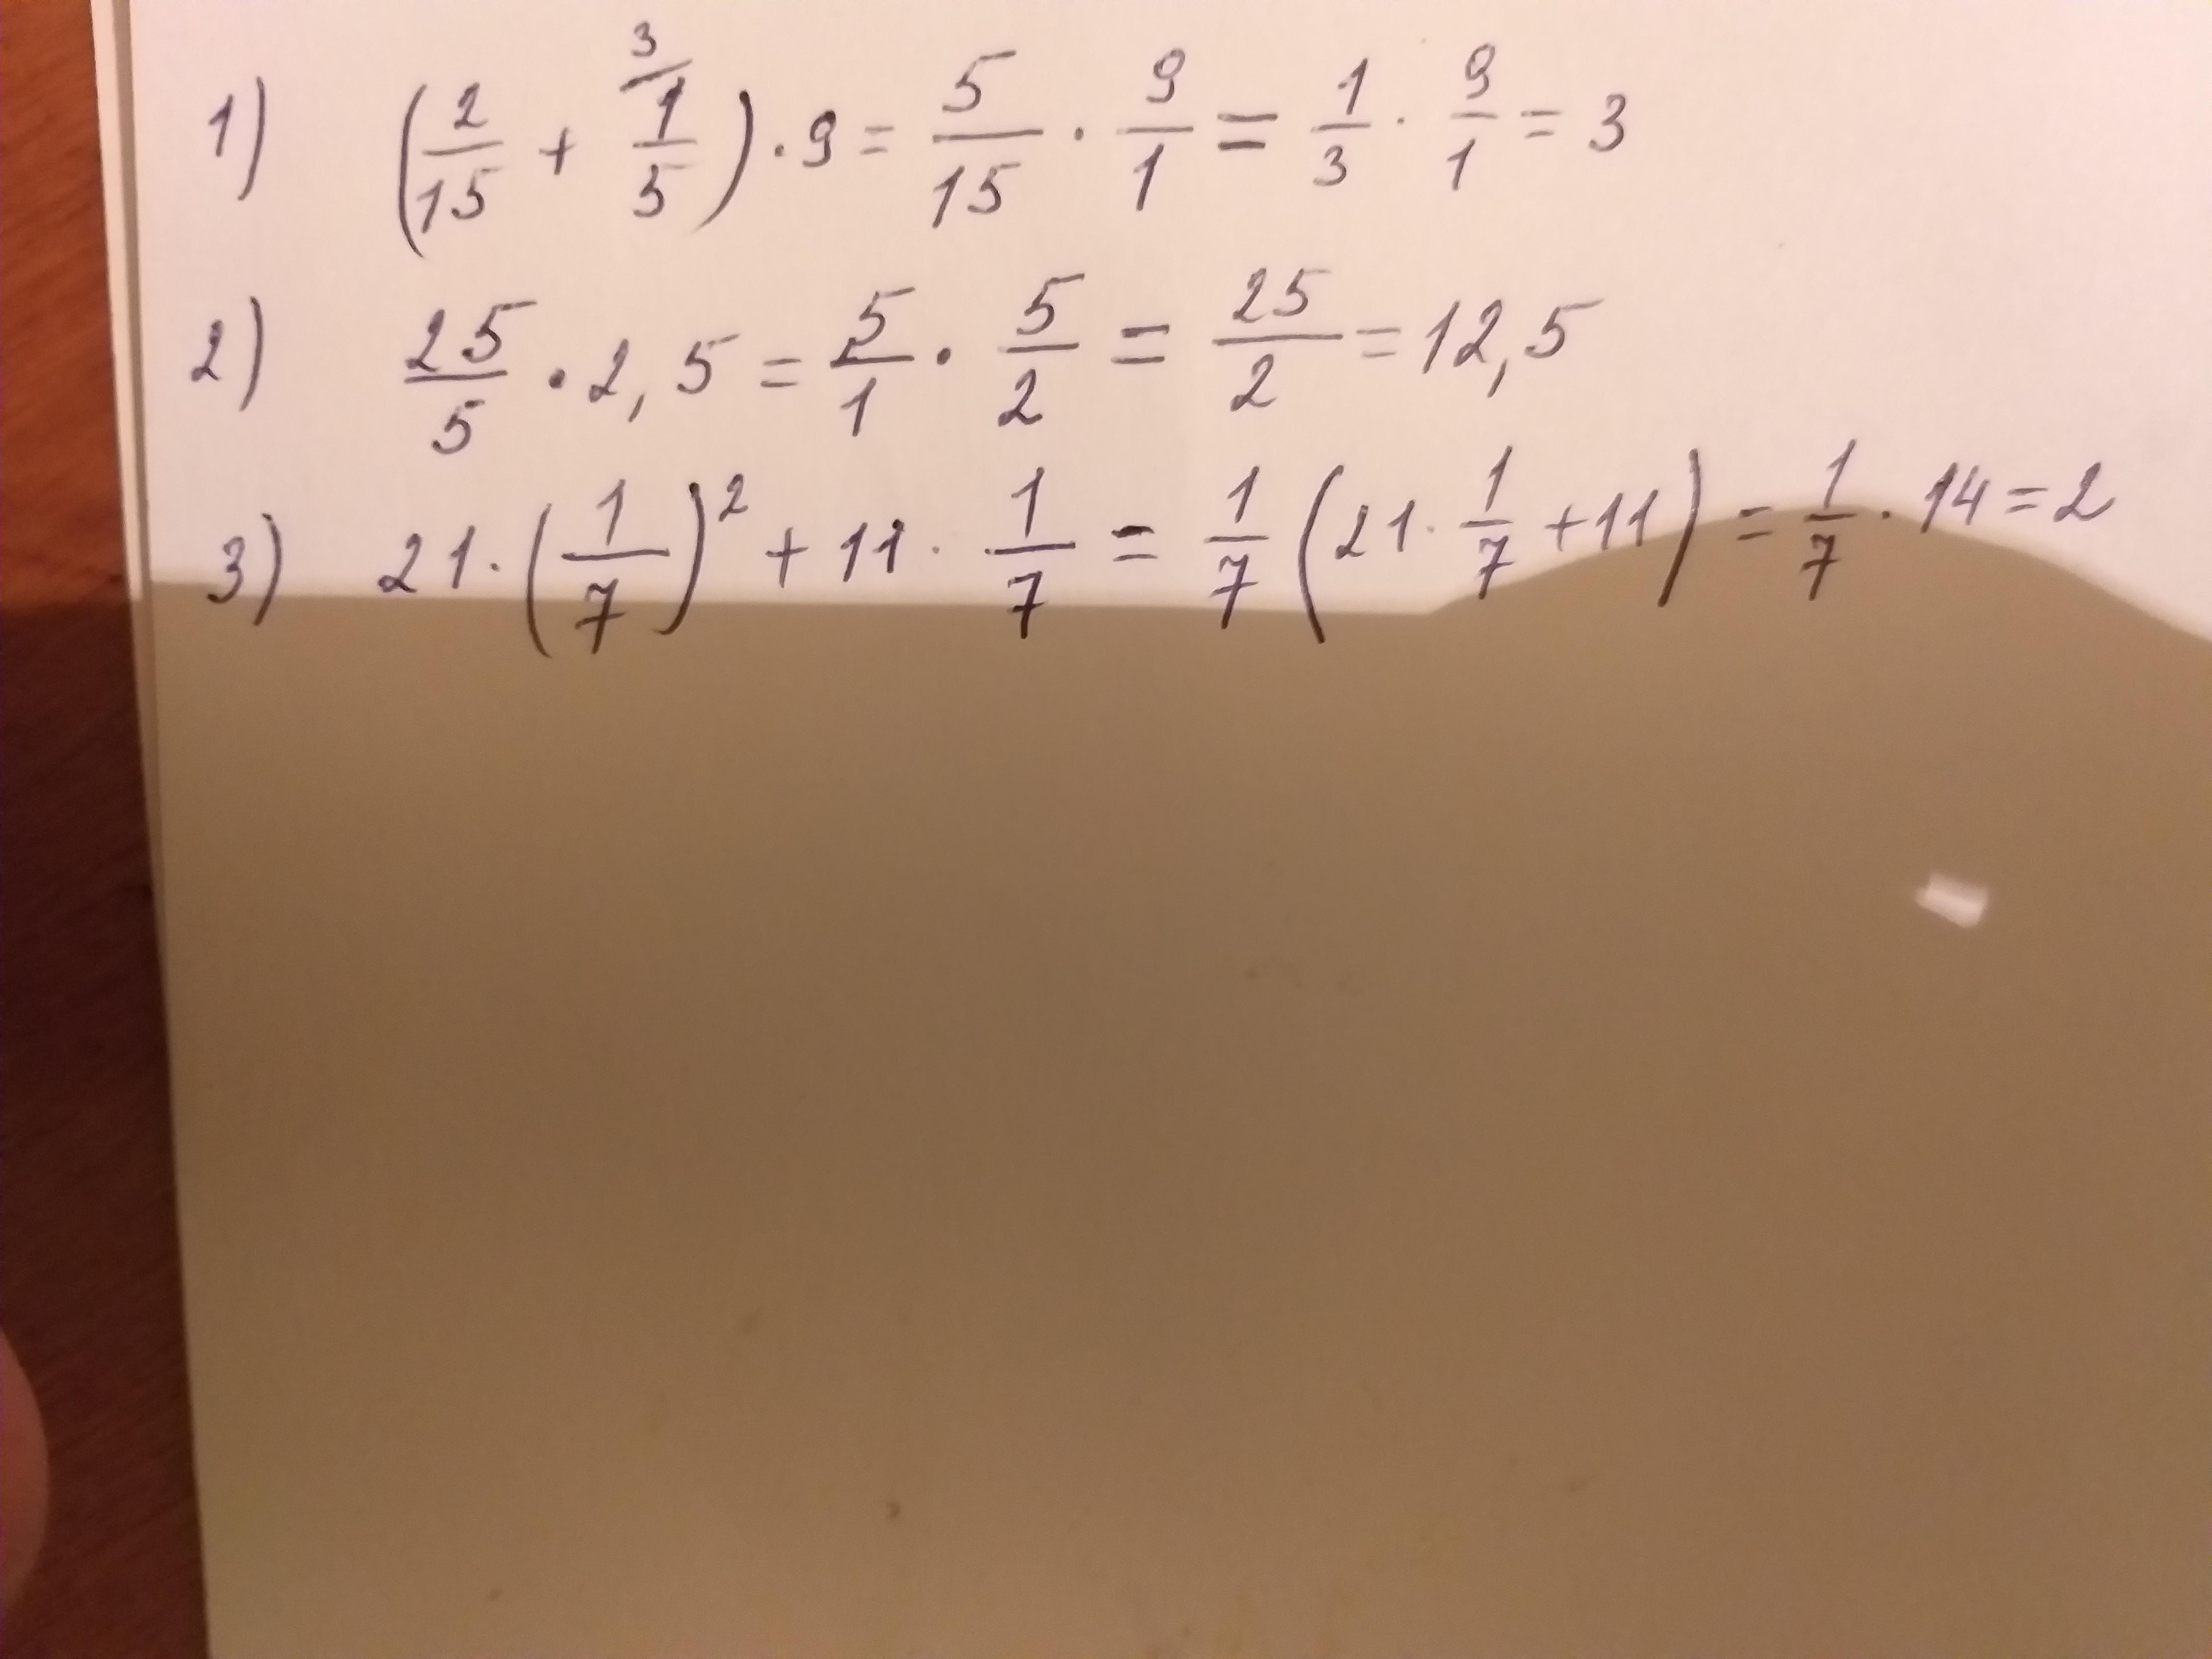 1) (2/15 + 3/1/5) · 9 = 5/15 · 9/1 = 1/3 · 9/1 = 3
2) 25/5 · 2,5 = 5/1 · 5/2 = 25/2 = 12,5
3) 21 · (1/7)² + 11 · 1/7 = 1/7 (21 · 1/7 + 11) = 1/7 · 14 = 2